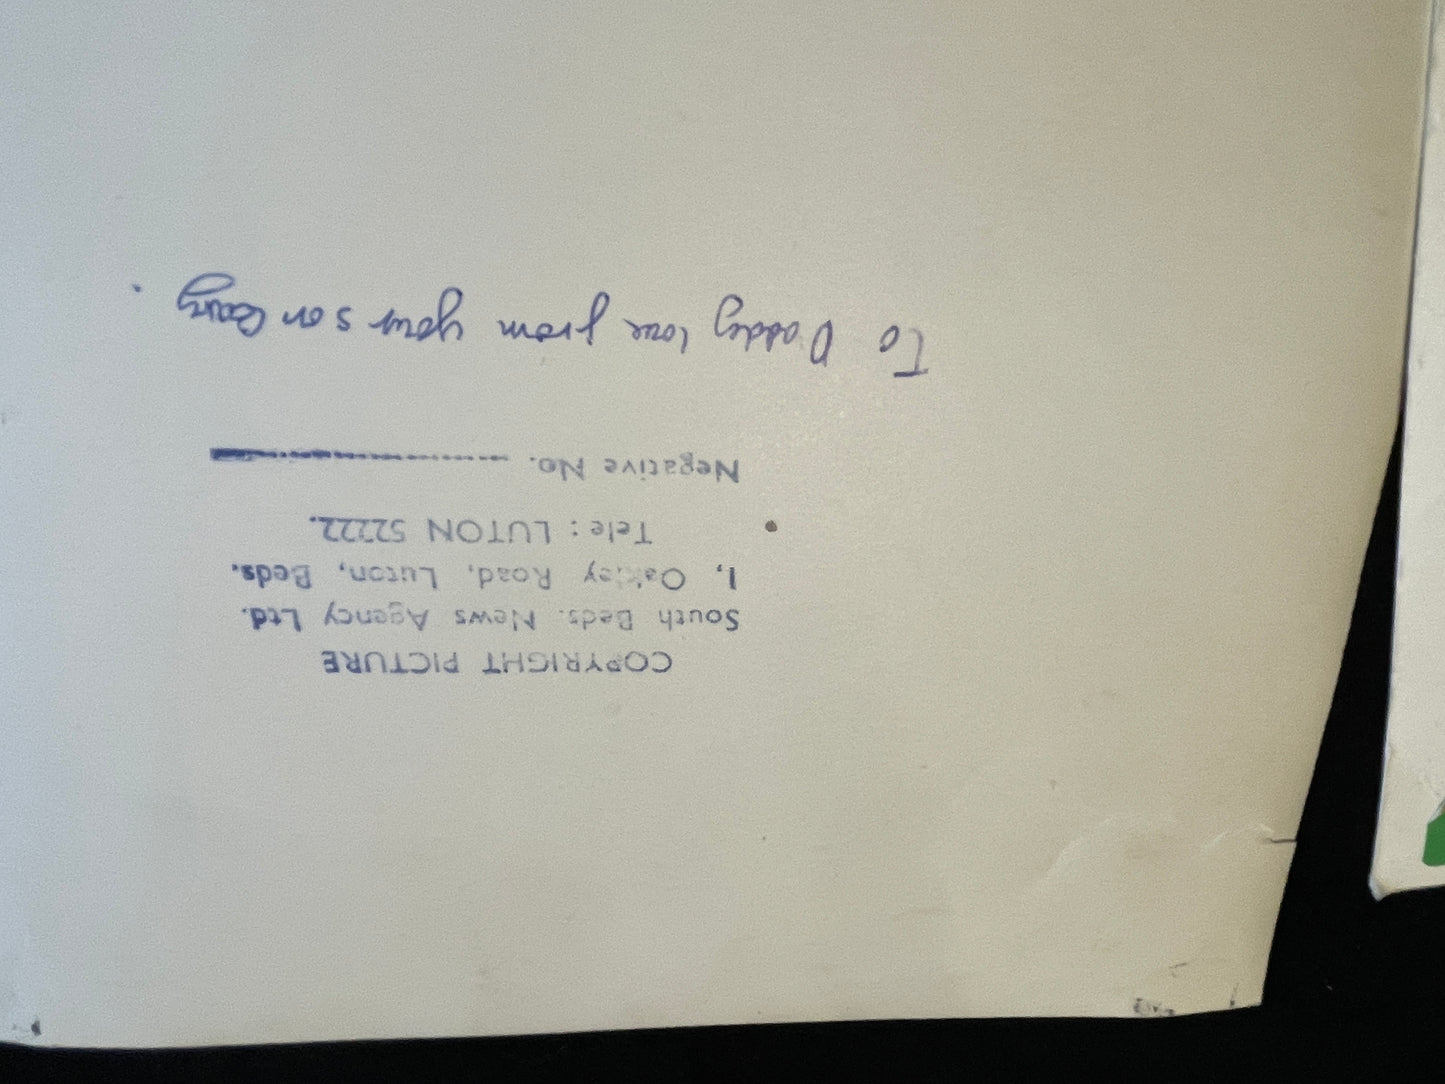 COPYRIGHT PICTURE
South Beds. News Agency Ltd.
1, Oakley Road, Luton, Beds.
Tele: LUTON 52222.
Negative No.
To Daddy love from your son